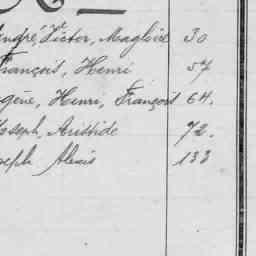 André, Victor, Magloire 30
François, Henri 57
gène, Henri, François 64.
Joseph, Aristide 72.
seph Alexis 133